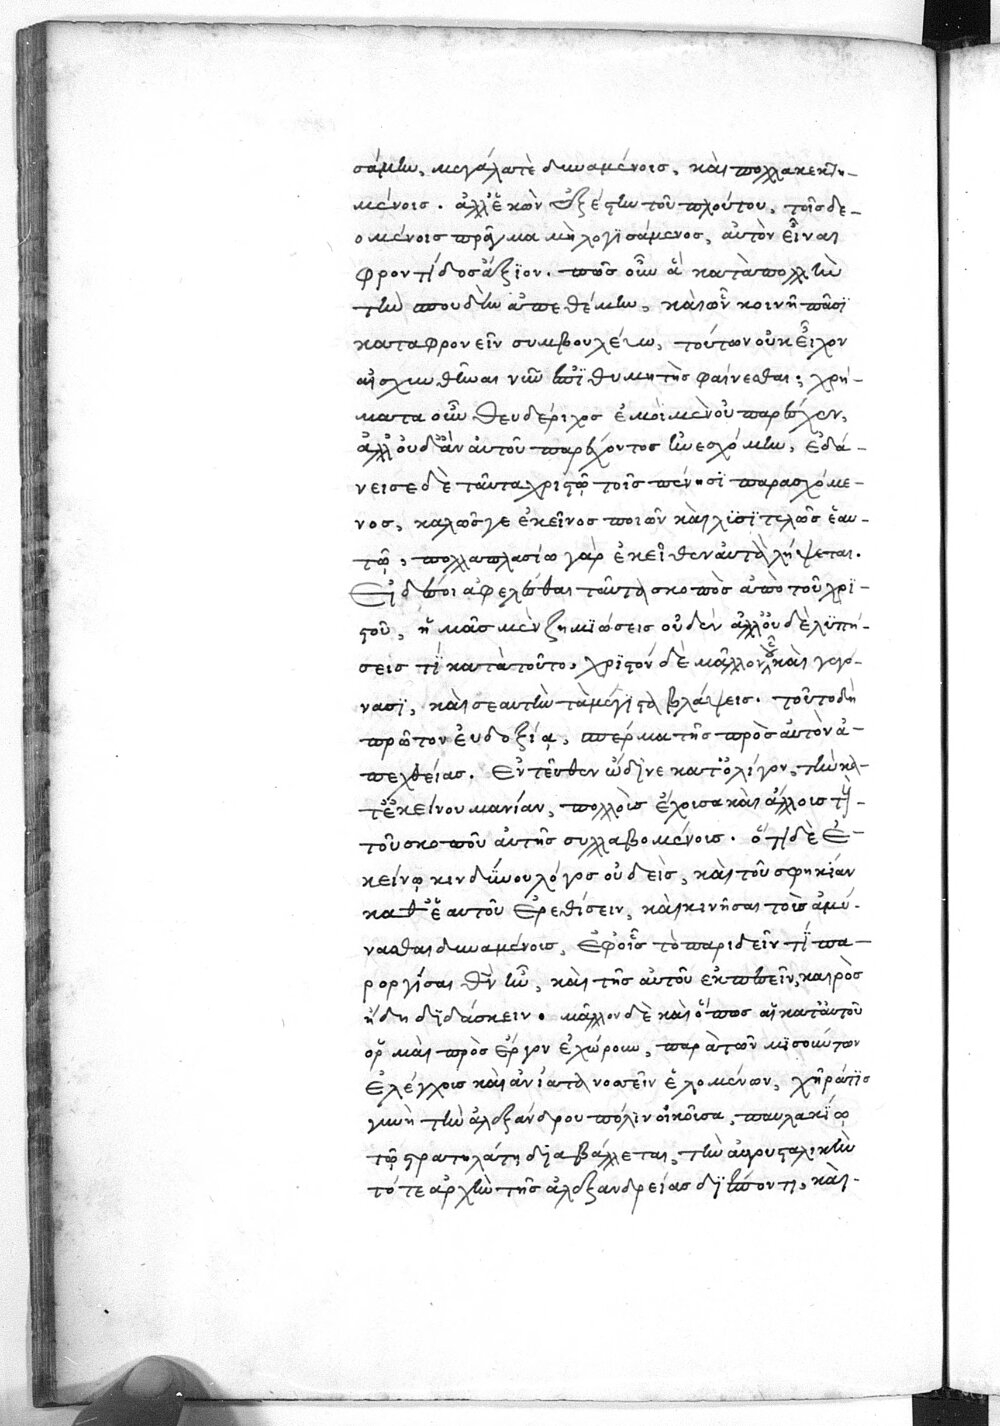 σάμην, μεγάλατὲ δυναμένοις, καὶ πολλὰ κεκτη-
μένοις. ἀλλ' ἑκὼν ἐξέστην τοῦ πλούτου, τοῖς δε-
ομένοις πρᾶγμα μὴ λογισάμενος, αὐτὸν εἶναι
φροντίδος ἄξϊον. πῶς οὖν ἃ κατὰ πολλὴν
τὴν σπουδὴν ἀπεθέμην, καὶ ὧν κοινῇ πᾶσϊ
καταφρονεῖν συμβουλεύω, τούτων οὐκ εἶχον
αἰσχυνθῆναι νῦν ἐπϊθυμητὴς φαίνεσθαι; χρή-
ματα οὖν θευδέριχος ἐμοὶ μὲν οὐ παρέσχεν,
ἀλλ' οὐδ' ἂν αὐτοῦ παρέχοντος ἠνεσχόμην, ἐδά-
νεισε δὲ ταῦτα χριστῷ τοῖς πένησϊ παρασχόμε-
νος, καλῶς γε ἐκεῖνος ποιῶν καὶ λϋσϊτελῶς ἑαυ-
τῷ, πολλαπλασίω γὰρ ἐκεῖθεν αὐτὰ λήψεται.
Εἰ δέ σοι ἀφελέσθαι ταῦτα σκοπὸς ἀπὸ τοῦ χρϊ-
στοῦ, ἡμᾶς μὲν ζημϊώσεις οὐδὲν ἀλλ' οὐδὲ λϋπή-
σεις τϊ κατὰ τοῦτο, χρϊστὸν δὲ μᾶλλον οὗ καὶ γεγό-
νασϊ, καὶ σεαυτὴν τὰ μέγϊστα βλάψεις. τοῦτο δὴ
πρῶτον εὐδοξίᾳ, σπέρμα τῆς πρὸς αὐτὸν ἀ-
πεχθείας. Ἐντεῦθεν ὤδϊνε κατ' ὀλίγον, τὴν κα-
τ' ἐκείνου μανίαν, πολλοῖς ἔχουσα καὶ ἄλλοις τῇ
τοῦ σκοποῦ αὐτῆς συλλαβομένοις. ὅτϊ δὲ ἐ-
κείνῳ κινδύνου λόγος οὐδεὶς, καὶ τοῦ σφηκϊὰν
καθ' ἑαυτοῦ ἐρεθίσειν, καὶ κινῆσαι τοὺς ἀμύ-
νασθαι δυναμένους, ἐφ' οἷς τὸ παριδεῖν τϊ πα-
ροργίσαι θεὸν ἦν, καὶ τῆς αὐτοῦ ἐκπεσεῖν, καιρὸς
ἤδη δϊδάσκειν. μᾶλλον δὲ καὶ ὅπως αἱ κατ' αὐτοῦ
ὁρμαὶ πρὸς ἔργον ἐχώρουν, παρὰ τῶν μϊσούντων
ἐλέγχους καὶ ἀνίατα νοσεῖν ἑλομένων, χῆρά τϊς
γυνὴ τὴν ἀλεξάνδρου πόλιν οἰκοῦσα, παυλακίῳ
τῷ στρατηλάτῃ δϊαβάλλεται, τὴν αὐγουσταλικὴν
τότε ἀρχὴν τῆς ἀλεξανδρείας δϊέποντϊ, καὶ